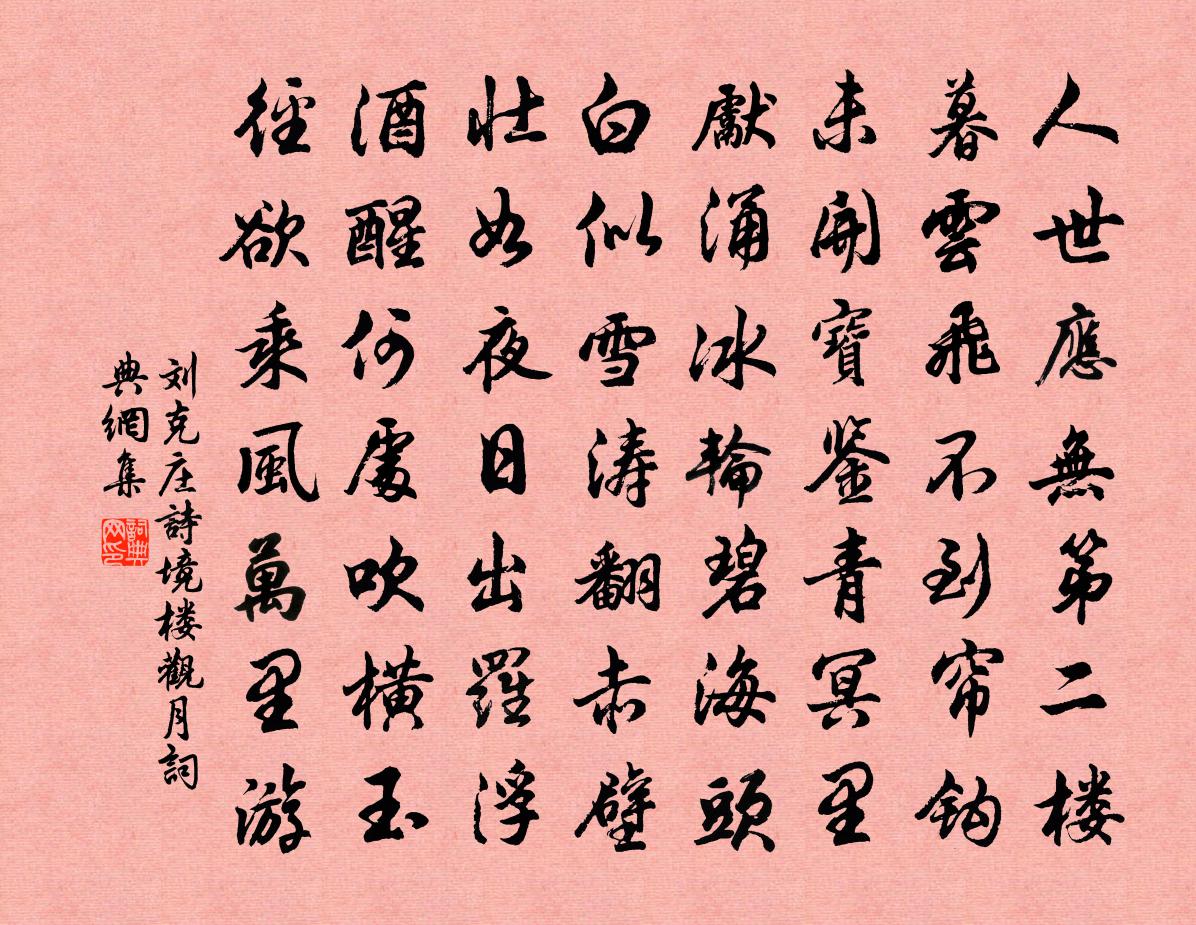 人世應無第二楼
暮雲飛不到帘鈎
未開寶鉴青冥里
獻涌冰輪碧海頭
白似雪涛翻赤壁
壮如夜日出羅浮
酒醒何處吹横玉
徑欲乘風萬里游
刘克庄詩境楼觀月詞
典網集
詞典网印